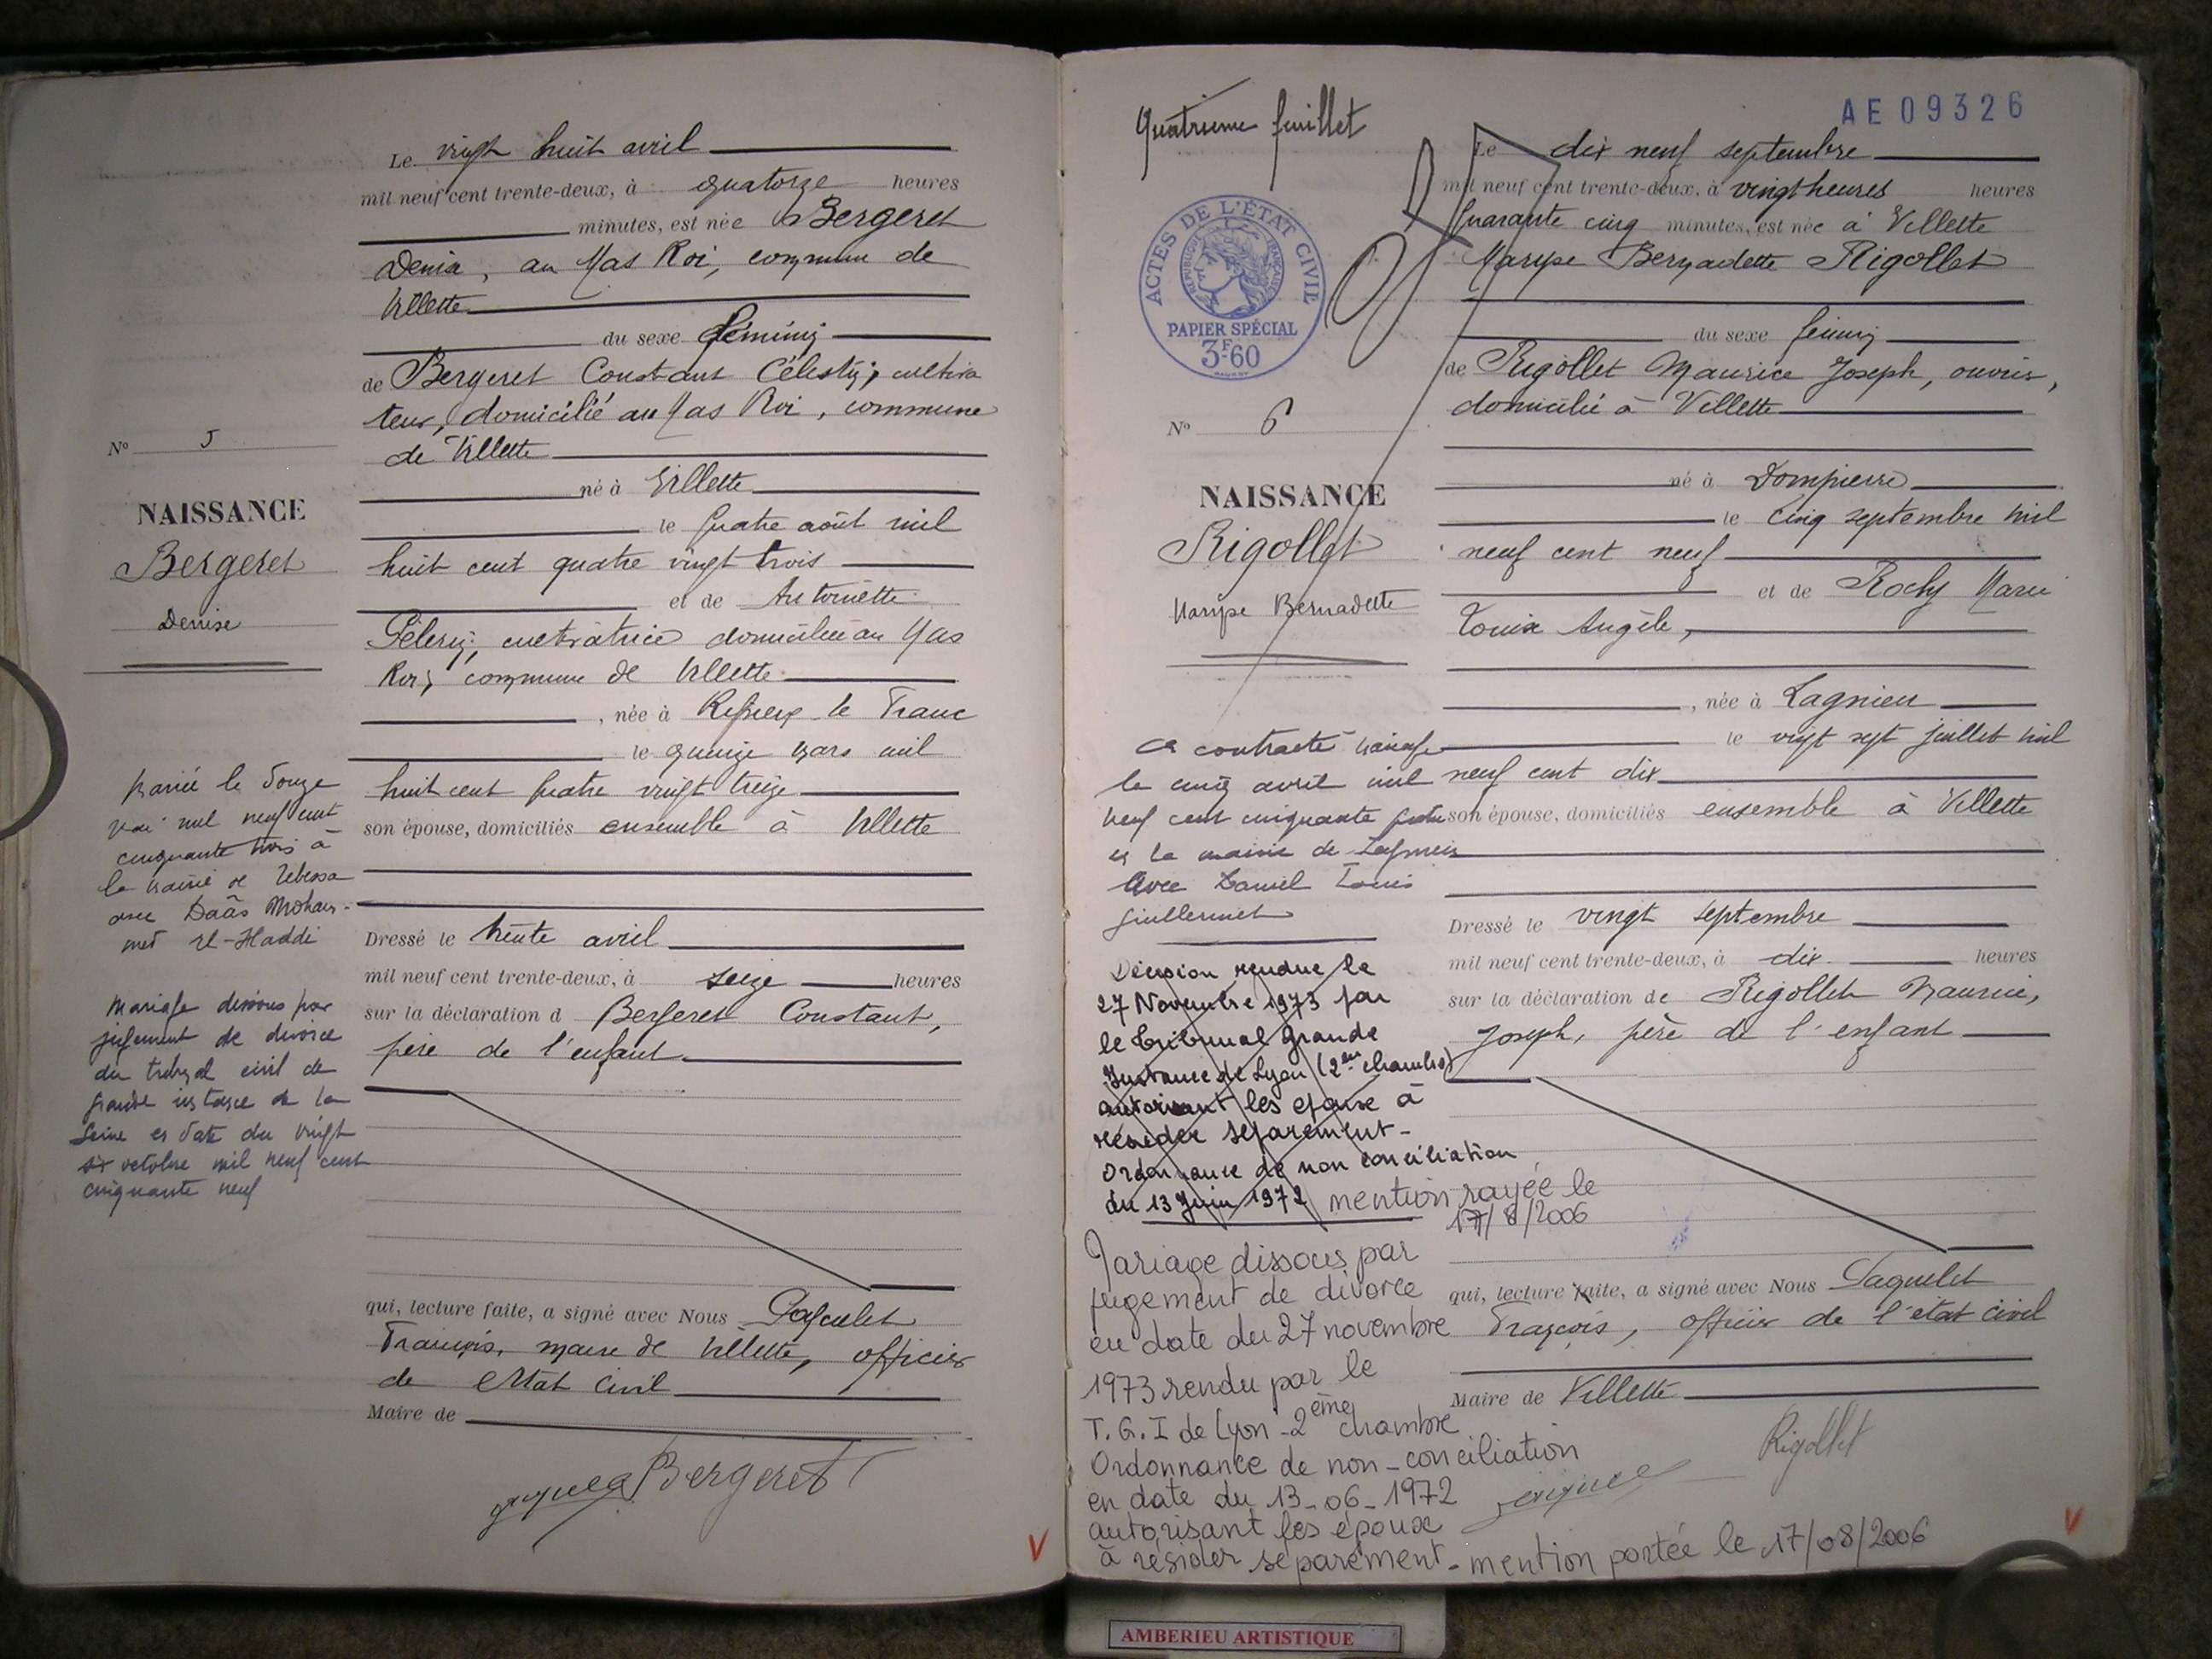 Le vingt huit avril
mil neuf cent trente-deux, à quatorze heures
minutes, est née Bergeret
Denise, au Mas Roi, commune de
Villette
du sexe féminin
de Bergeret Constant Célestin, cultiva
teur, domicilié au Mas Roi, commune
de Villette
né à Villette
le quatre août mil
huit cent quatre vingt trois
et de Antoinette
cultivatrice domiciliée au Mas
Roi, commune de Villette
, née à le Franc
le quinze mars mil
huit cent quatre vingt treize
son épouse, domiciliés ensemble à Villette
Dressé le trente avril
mil neuf cent trente-deux, à seize heures
sur la déclaration d Bergeret Constant,
père de l'enfant
qui, lecture faite, a signé avec Nous Paquelet
François, maire de Villette, officier
de l'état civil
Maire de
Bergeret
No 5
NAISSANCE
Bergeret
Denise
Mariée le douze
mai mil neuf cent
cinquante trois à
la mairie de Tébessa
avec Daâs Moham-
med El-Haddi
Mariage dissous par
jugement de divorce
du tribunal civil de
grande instance de la
Seine en date du vingt
six octobre mil neuf cent
cinquante neuf
V
Quatrième feuillet
AE 09326
ACTES DE L'ÉTAT CIVIL
RÉPUBLIQUE FRANÇAISE
PAPIER SPÉCIAL
3F-60
Le dix neuf septembre
mil neuf cent trente-deux, à vingt heures heures
quarante cinq minutes, est née à Villette
Maryse Bernadette Rigollet
du sexe féminin
de Rigollet Maurice Joseph, ouvrier,
domicilié à Villette
né à Dompierre
le cinq septembre mil
neuf cent neuf
et de Rochy Marie
Louise Angèle,
, née à Lagnieu
le vingt sept juillet mil
neuf cent dix
son épouse, domiciliés ensemble à Villette
Dressé le vingt septembre
mil neuf cent trente-deux, à dix heures
sur la déclaration de Rigollet Maurice,
Joseph, père de l'enfant
qui, lecture faite, a signé avec Nous Paquelet
François, officier de l'état civil
Maire de Villette
Rigollet
No 6
NAISSANCE
Rigollet
Maryse Bernadette
a contracté mariage
le cinq avril mil
neuf cent cinquante quatre
en la mairie de Lagnieu
avec Daniel Louis
Guillermet
Décision rendue le
27 Novembre 1973 par
le tribunal grande
Instance de Lyon (2ème chambre)
autorisant les epouse à
résider séparément-
Ordonnance de non conciliation
du 13 Juin 1972 mention rayée le
17/8/2006
Mariage dissous par
jugement de divorce
en date du 27 novembre
1973 rendu par le
T.G.I de Lyon - 2ème chambre
Ordonnance de non-conciliation
en date du 13-06-1972
autorisant les époux
à résider séparément - mention portée le 17/08/2006
V
AMBERIEU ARTISTIQUE